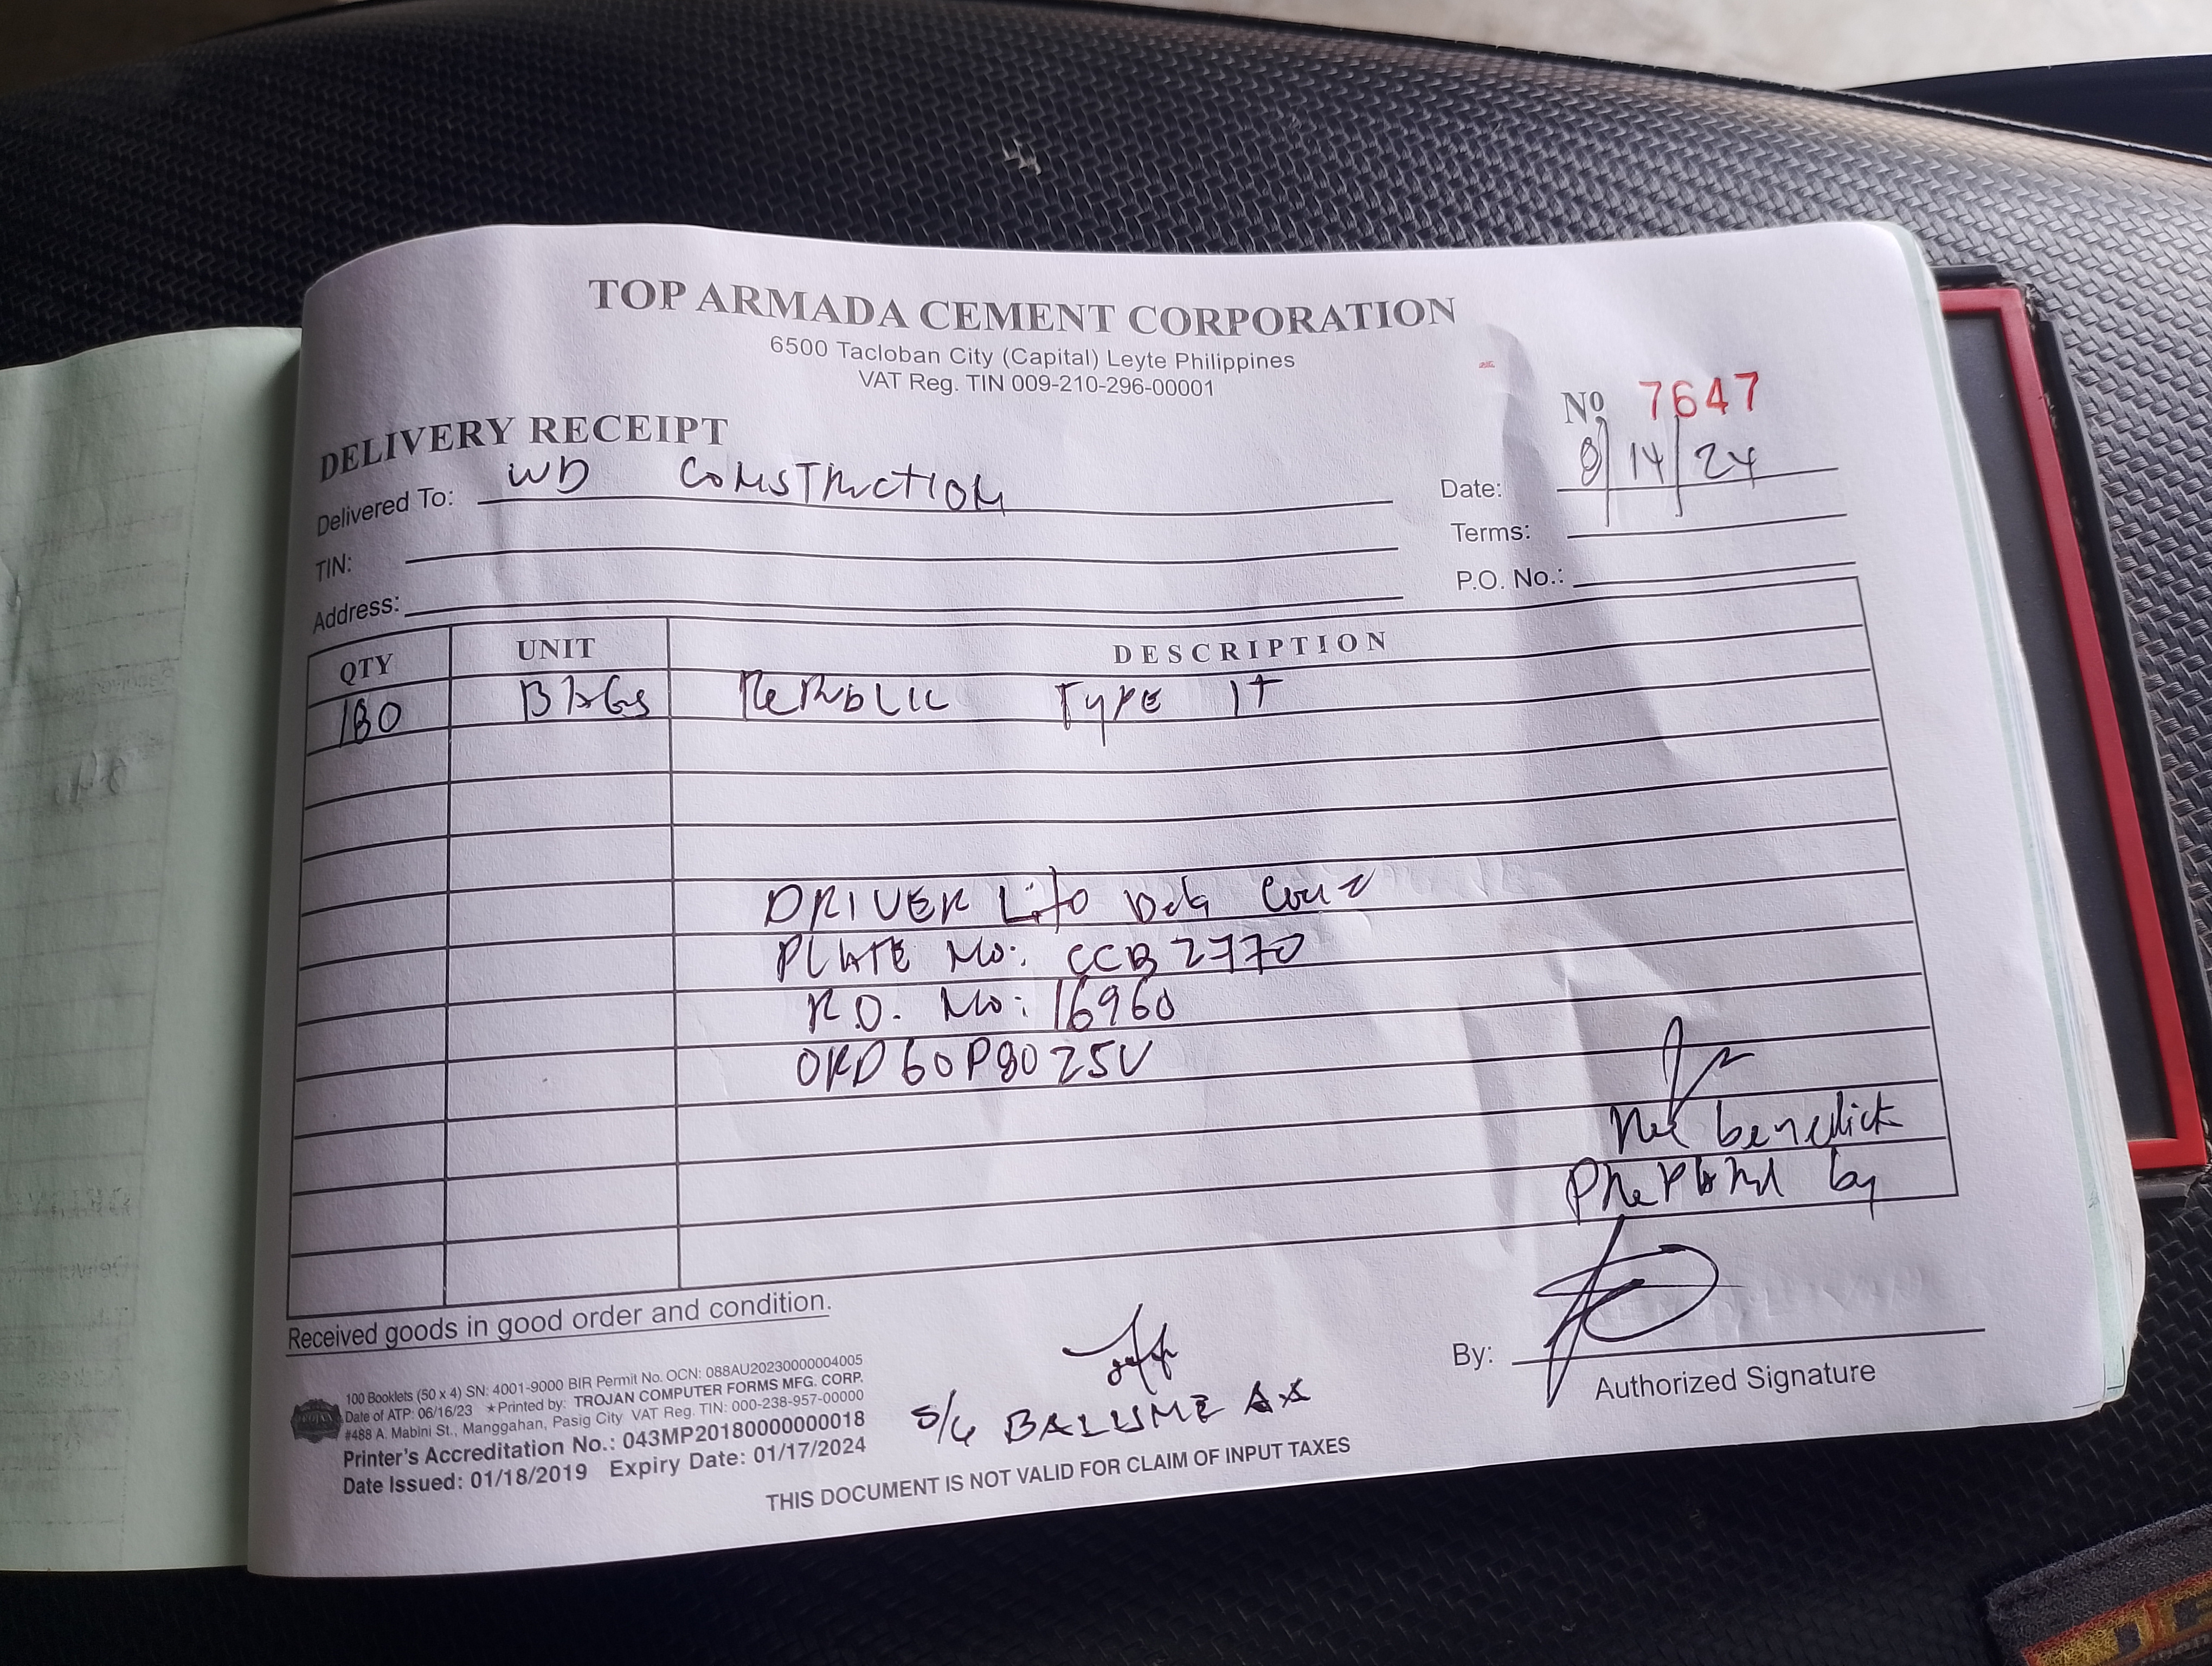 TOP ARMADA CEMENT CORPORATION
6500 Tacloban City (Capital) Leyte Philippines
VAT Reg. TIN 009-210-296-00001
Nº 7647
DELIVERY RECEIPT
Delivered To: WD CONSTRUCTION
Date: 8/14/24
TIN:
Terms:
Address:
P.O. No.:
QTY UNIT DESCRIPTION
180 BAGS REPUBLIC TYPE 1T
DRIVER Lito Dela
PLATE No: CCB 2770
R.O. No: 16960
ORD60P8025V
benedick
Prepared by
Received goods in good order and condition.
By:
Authorized Signature
100 Booklets (50 x 4) SN: 4001-9000 BIR Permit No. OCN: 088AU20230000004005
Date of ATP: 06/16/23 ★Printed by: TROJAN COMPUTER FORMS MFG. CORP.
#488 A. Mabini St., Manggahan, Pasig City VAT Reg. TIN: 000-238-957-00000
Printer's Accreditation No.: 043MP20180000000018
Date Issued: 01/18/2019 Expiry Date: 01/17/2024
S/G
THIS DOCUMENT IS NOT VALID FOR CLAIM OF INPUT TAXES